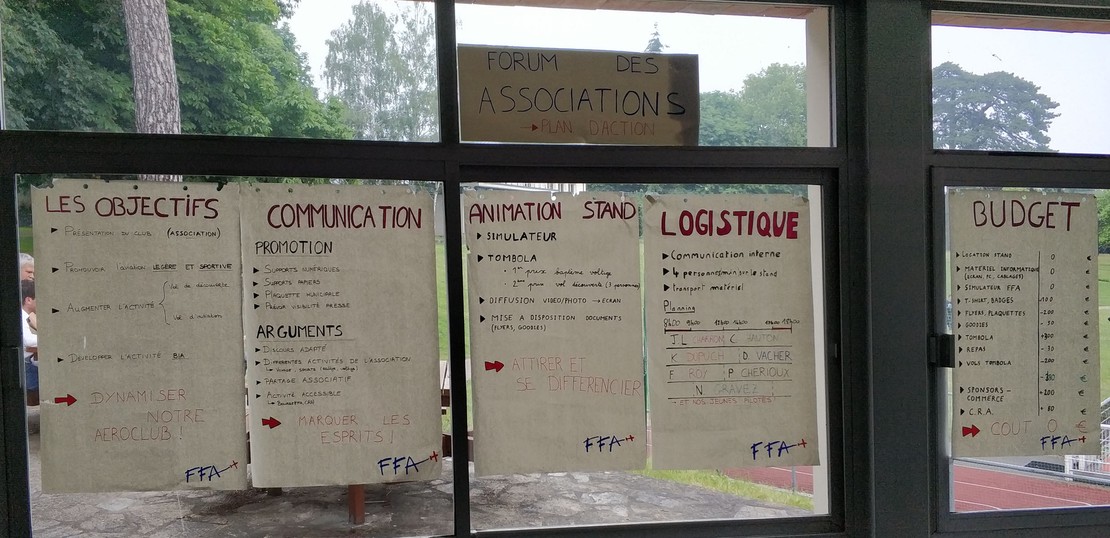 FORUM DES
ASSOCIATIONS
→ PLAN D'ACTION
LES OBJECTIFS
▶ PRÉSENTATION DU CLUB (ASSOCIATION)
▶ PROMOUVOIR L'AVIATION LÉGÈRE ET SPORTIVE
▶ AUGMENTER L'ACTIVITÉ
Vol de découverte
Vol d'initiation
▶ DÉVELOPPER L'ACTIVITÉ BIA
DYNAMISER
NOTRE
AEROCLUB !
FFA
COMMUNICATION
PROMOTION
▶ SUPPORTS NUMÉRIQUES
▶ SUPPORTS PAPIERS
▶ PLAQUETTE MUNICIPALE
▶ PRÉVOIR VISIBILITÉ PRESSE
ARGUMENTS
▶ DISCOURS ADAPTÉ
▶ DIFFÉRENTES ACTIVITÉS DE L'ASSOCIATION
▶ PARTAGE ASSOCIATIF
▶ ACTIVITÉ ACCESSIBLE
MARQUER LES
ESPRITS !
FFA
ANIMATION STAND
▶ SIMULATEUR
▶ TOMBOLA
• 1er prix baptême voltige
• 2ème prix vol découverte (3 personnes)
▶ DIFFUSION VIDEO/PHOTO → ECRAN
▶ MISE A DISPOSITION DOCUMENTS
(FLYERS, GOODIES)
ATTIRER ET
SE DIFFERENCIER
FFA
LOGISTIQUE
▶ Communication interne
▶ 4 personnes/min sur le stand
▶ Transport matériel
Planning
J.L CHARRON C.
K DUPUCH D. VACHER
F ROY P CHERIOUX
N GRAVEZ
→ ET NOS JEUNES PILOTES !
FFA
BUDGET
▶ LOCATION STAND 0 €
▶ MATÉRIEL INFORMATIQUE 0 €
(ECRAN, PC, CABLAGES)
▶ SIMULATEUR FFA 0 €
▶ T-SHIRT, BADGES -100 €
▶ FLYERS, PLAQUETTES -200 €
▶ GOODIES - 50 €
▶ TOMBOLA +300 €
▶ REPAS - 30 €
▶ VOLS TOMBOLA -200 €
€
▶ SPONSORS - +200 €
COMMERCE
▶ C.R.A. + 80 €
COUT 0 €
FFA